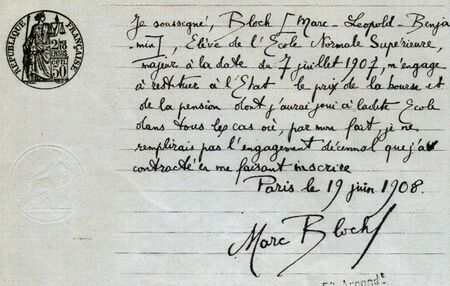 RÉPUBLIQUE FRANÇAISE
50
Je soussigné, Bloch [Marc-Léopold-Benja
min], Elève de l'Ecole Normale Supérieure,
majeur à la date du 7 juillet 1907, m'engage
à restituer à l'Etat le prix de la bourse et
de la pension dont j'aurai joui à ladite Ecole
dans tous les cas où, par mon fait, je ne
remplirais pas l'engagement décennal que j'ai
contracté en me faisant inscrire
Paris le 19 juin 1908.
Marc Bloch